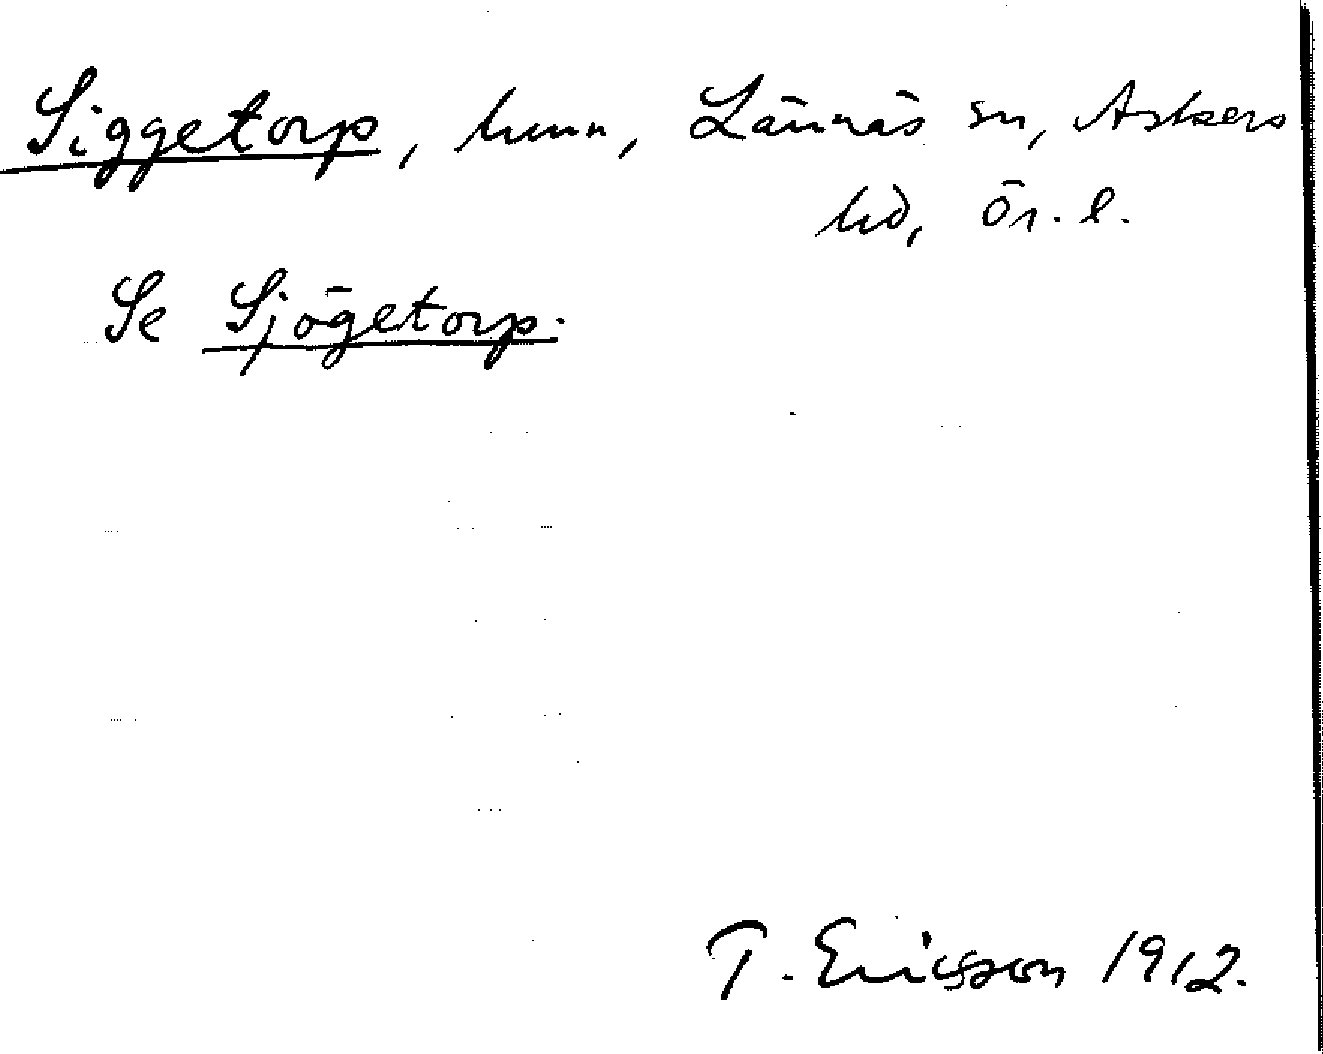 Siggetorp, hmn, Lännäs sn, Askers
hd, Ör. l.
Se Sjögetorp.
T. Ericsson 1912.